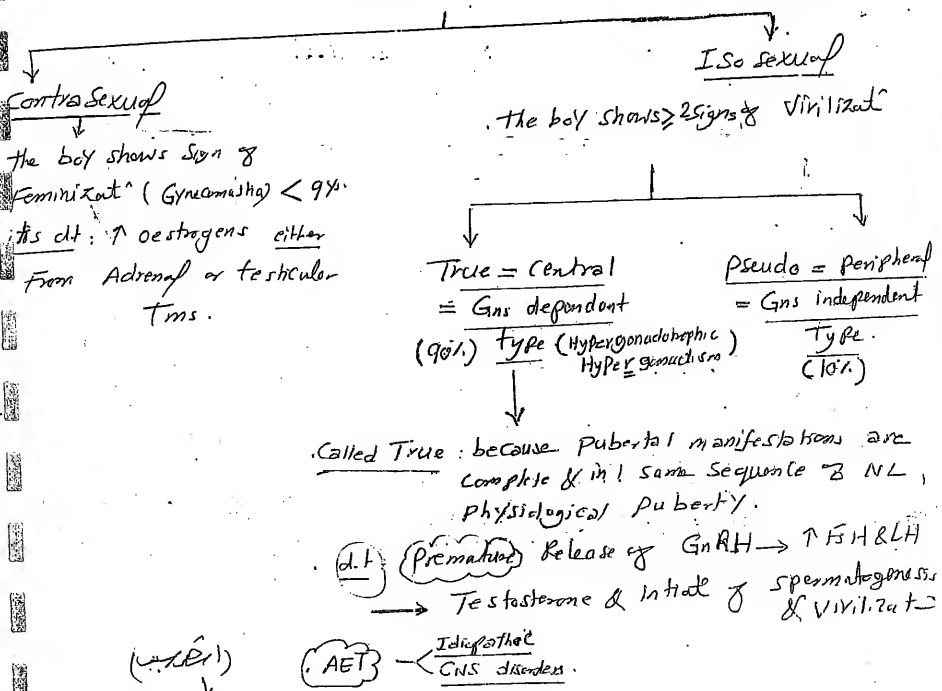 Contrasexual
the boy shows Sign of
Feminizat^n (Gynecomastia) < 9 y.
it's dt : ↑ oestrogens either
From Adrenal or testicular
Tms.
Isosexual
. the boy shows ≥ 2 signs of Virilizat^n
True = Central
= Gns dependant
(90%) type (Hypergonadotrophic
Hypergonadism)
Pseudo = Peripheral
= Gns independent
Type.
(10%)
. Called True : because Pubertal manifestations are
complete & in same Sequence of NL,
physiological puberty.
. d.t Premature Release of GnRH → ↑ FSH & LH
→ Testosterone & intiat of spermatogenesis
& Virilizat
. AET
Idiopathic
CNS disorders.